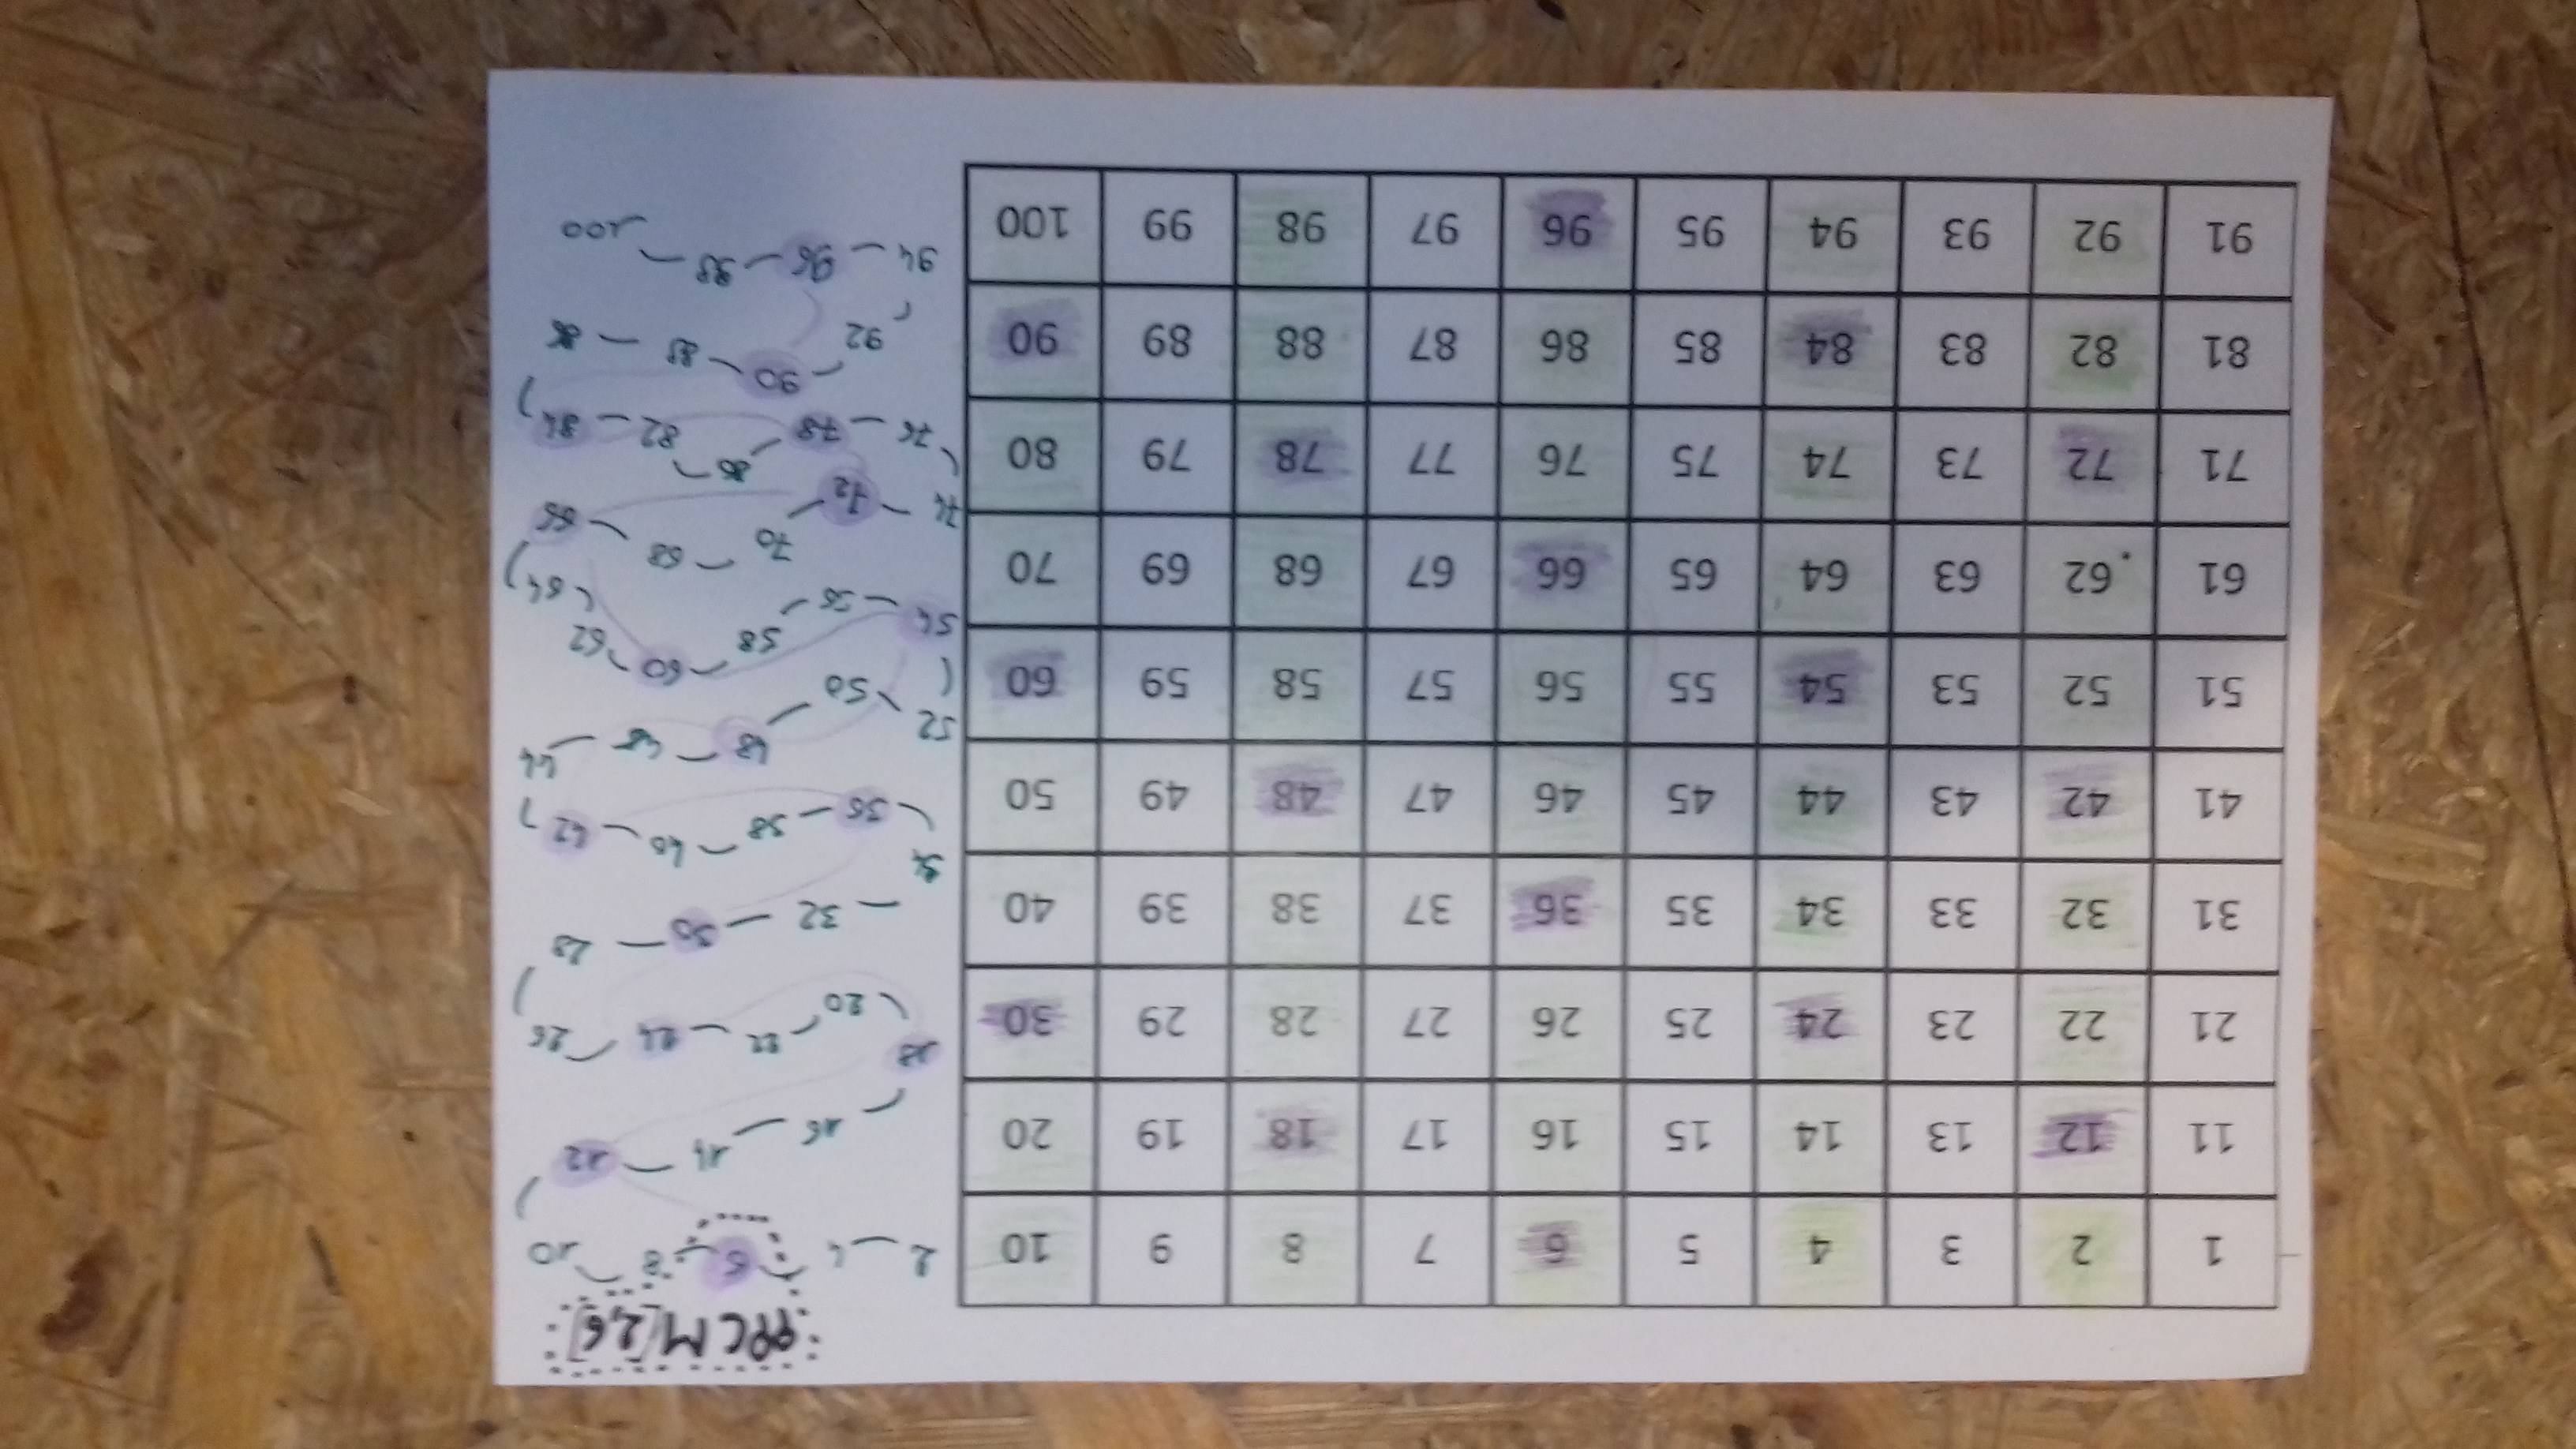 1 2 3 4 5 6 7 8 9 10
11 12 13 14 15 16 17 18 19 20
21 22 23 24 25 26 27 28 29 30
31 32 33 34 35 36 37 38 39 40
41 42 43 44 45 46 47 48 49 50
51 52 53 54 55 56 57 58 59 60
61 62 63 64 65 66 67 68 69 70
71 72 73 74 75 76 77 78 79 80
81 82 83 84 85 86 87 88 89 90
91 92 93 94 95 96 97 98 99 100
PPCM(2,6)
2 4 6 8 10
16 14 12
18
20 22 24 26
32 30 28
34
36 38 40 42
52 50 48 44
54 56 58 60 62 64
74 72 70 68 66
76 78 82 84
92 90 88 86
94 96 98 100